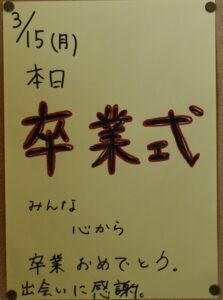 3/15(月)
本日
卒業式
みんな
心から
卒業おめでとう.
出会いに感謝。